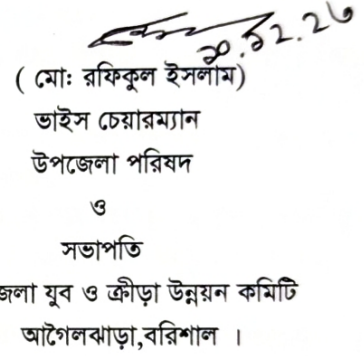 ২০.১২.২৬
( মোঃ রফিকুল ইসলাম)
ভাইস চেয়ারম্যান
উপজেলা পরিষদ
ও
সভাপতি
জলা যুব ও ক্রীড়া উন্নয়ন কমিটি
আগৈলঝাড়া,বরিশাল ।